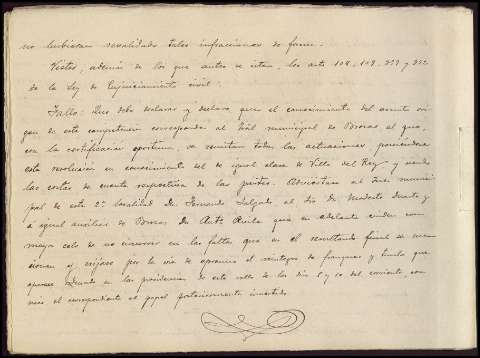 no hubieran revalidado tales infracciones de forma.
Vistos, además de los que antes se citan, los arts 108, 109, y
de la Ley de Enjuiciamiento civil.
Fallo: Que debo declarar y declaro que el conocimiento del asunto ori-
gen de esta competencia corresponde al Trial municipal de Brozas, al que,
con la certificación oportuna, se remitan todas las actuaciones, poniéndose
esta resolución en conocimiento del de igual clase de Villa del Rey y siendo
las costas de cuenta respectiva de las partes. Adviértase al Juez munici-
pal de esta 2ª localidad D. Fernando Salgado al Srio de Modesto Duarte y
a igual auxiliar de Brozas D. que en adelante cuiden con
mayor celo de no incurrir en las faltas que en el resultando final se men-
cionan y exíjase por la vía de apremio el reintegro de
de este valle de los días 8 y 10 del corriente
mes el correspondiente al papel posteriormente invertido.